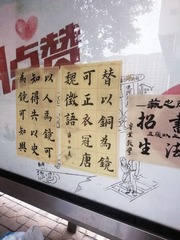 点赞
以人為鏡可
知得失以史
為鏡可知興
替以銅為鏡
可正衣冠唐
魏徵語
書法
招生